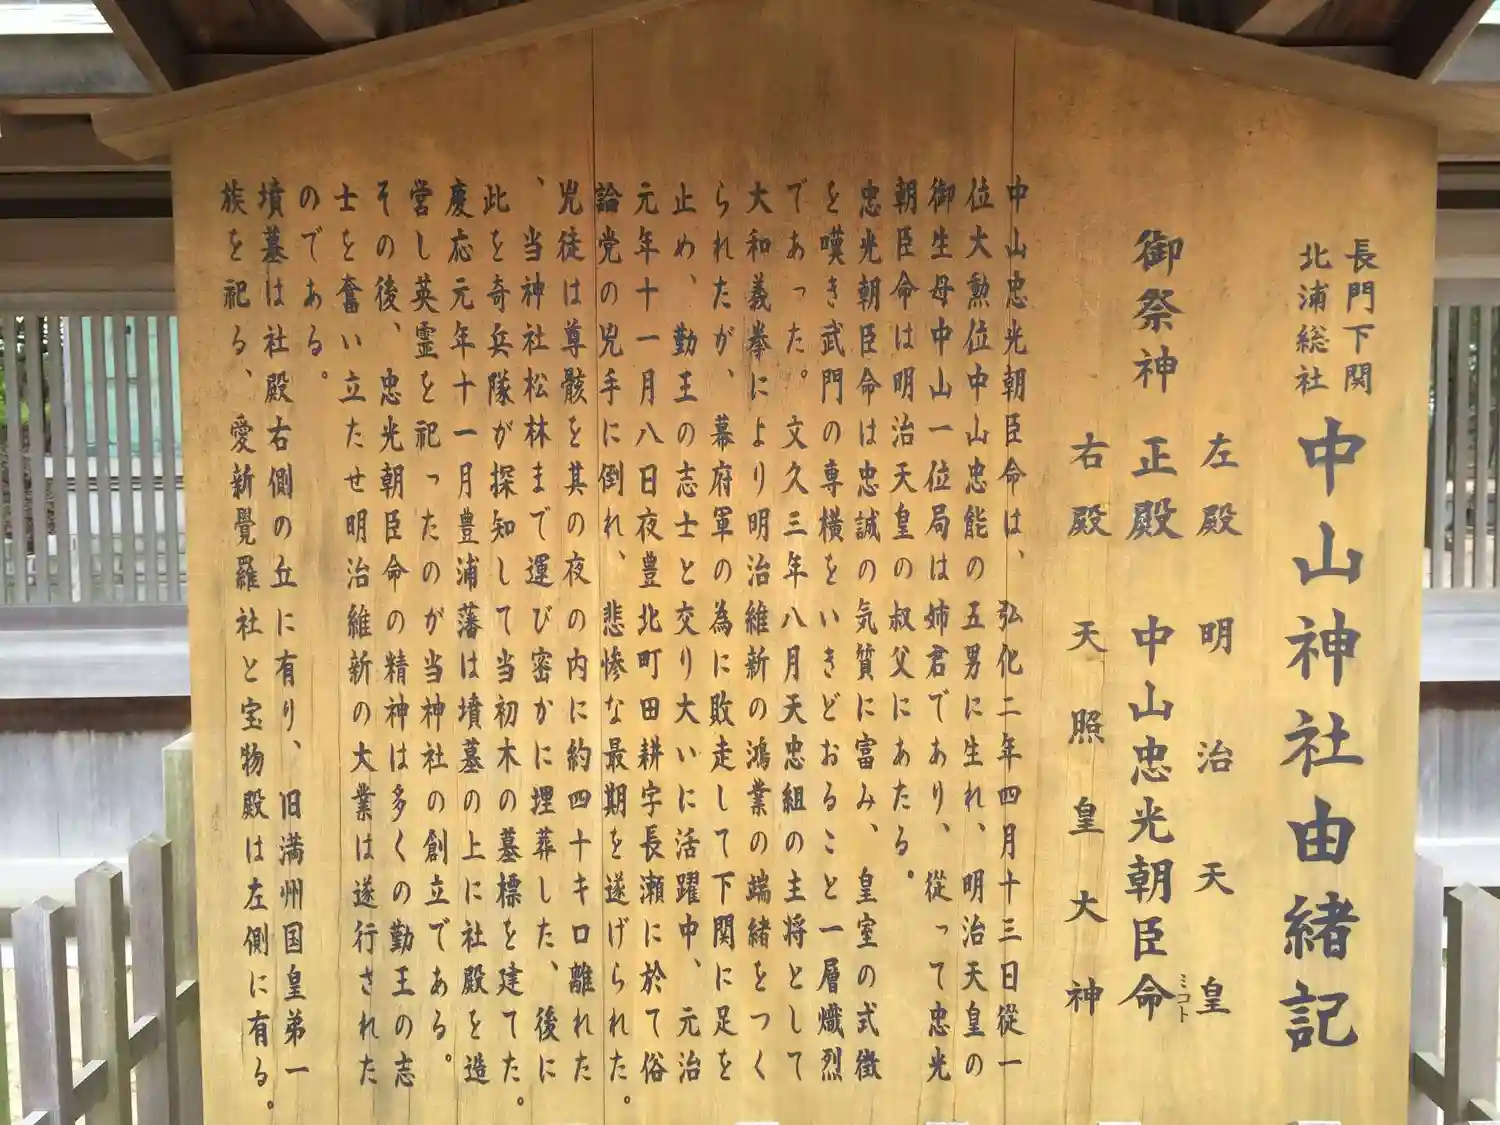 長門下関
北浦総社
中山神社由緒記
左殿 明治天皇
御祭神 正殿 中山忠光朝臣命
ミコト
右殿 天照皇大神
中山忠光朝臣命は、弘化二年四月十三日従一
位大勲位中山忠能の五男に生れ、明治天皇の
御生母中山一位局は姉君であり、従って忠光
朝臣命は明治天皇の叔父にあたる。
忠光朝臣命は忠誠の気質に富み、皇室の式微
を嘆き武門の専横をいきどおること一層熾烈
であった。文久三年八月天忠組の主将として
大和義挙により明治維新の鴻業の端緒をつく
られたが、幕府軍の為に敗走して下関に足を
止め、勤王の志士と交り大いに活躍中、元治
元年十一月八日夜豊北町田耕字長瀬に於て俗
論党の兇手に倒れ、悲惨な最期を遂げられた。
兇徒は尊骸を其の夜の内に約四十キロ離れた
、当神社松林まで運び密かに埋葬した、後に
此を奇兵隊が探知して当初木の墓標を建てた。
慶応元年十一月豊浦藩は墳墓の上に社殿を造
営し英霊を祀ったのが当神社の創立である。
その後、忠光朝臣命の精神は多くの勤王の志
士を奮い立たせ明治維新の大業は遂行された
のである。
墳墓は社殿右側の丘に有り、旧満州国皇弟一
族を祀る、愛新覺羅社と宝物殿は左側に有る。